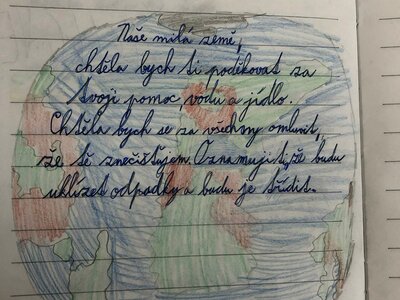 Naše milá země,
chtěla bych ti poděkovat za
tvoji pomoc, vodu a jídlo.
Chtěla bych se za všechny omluvit,
že tě znečišťujem. Oznamuji ti, že budu
uklízet odpadky a budu je třídit.